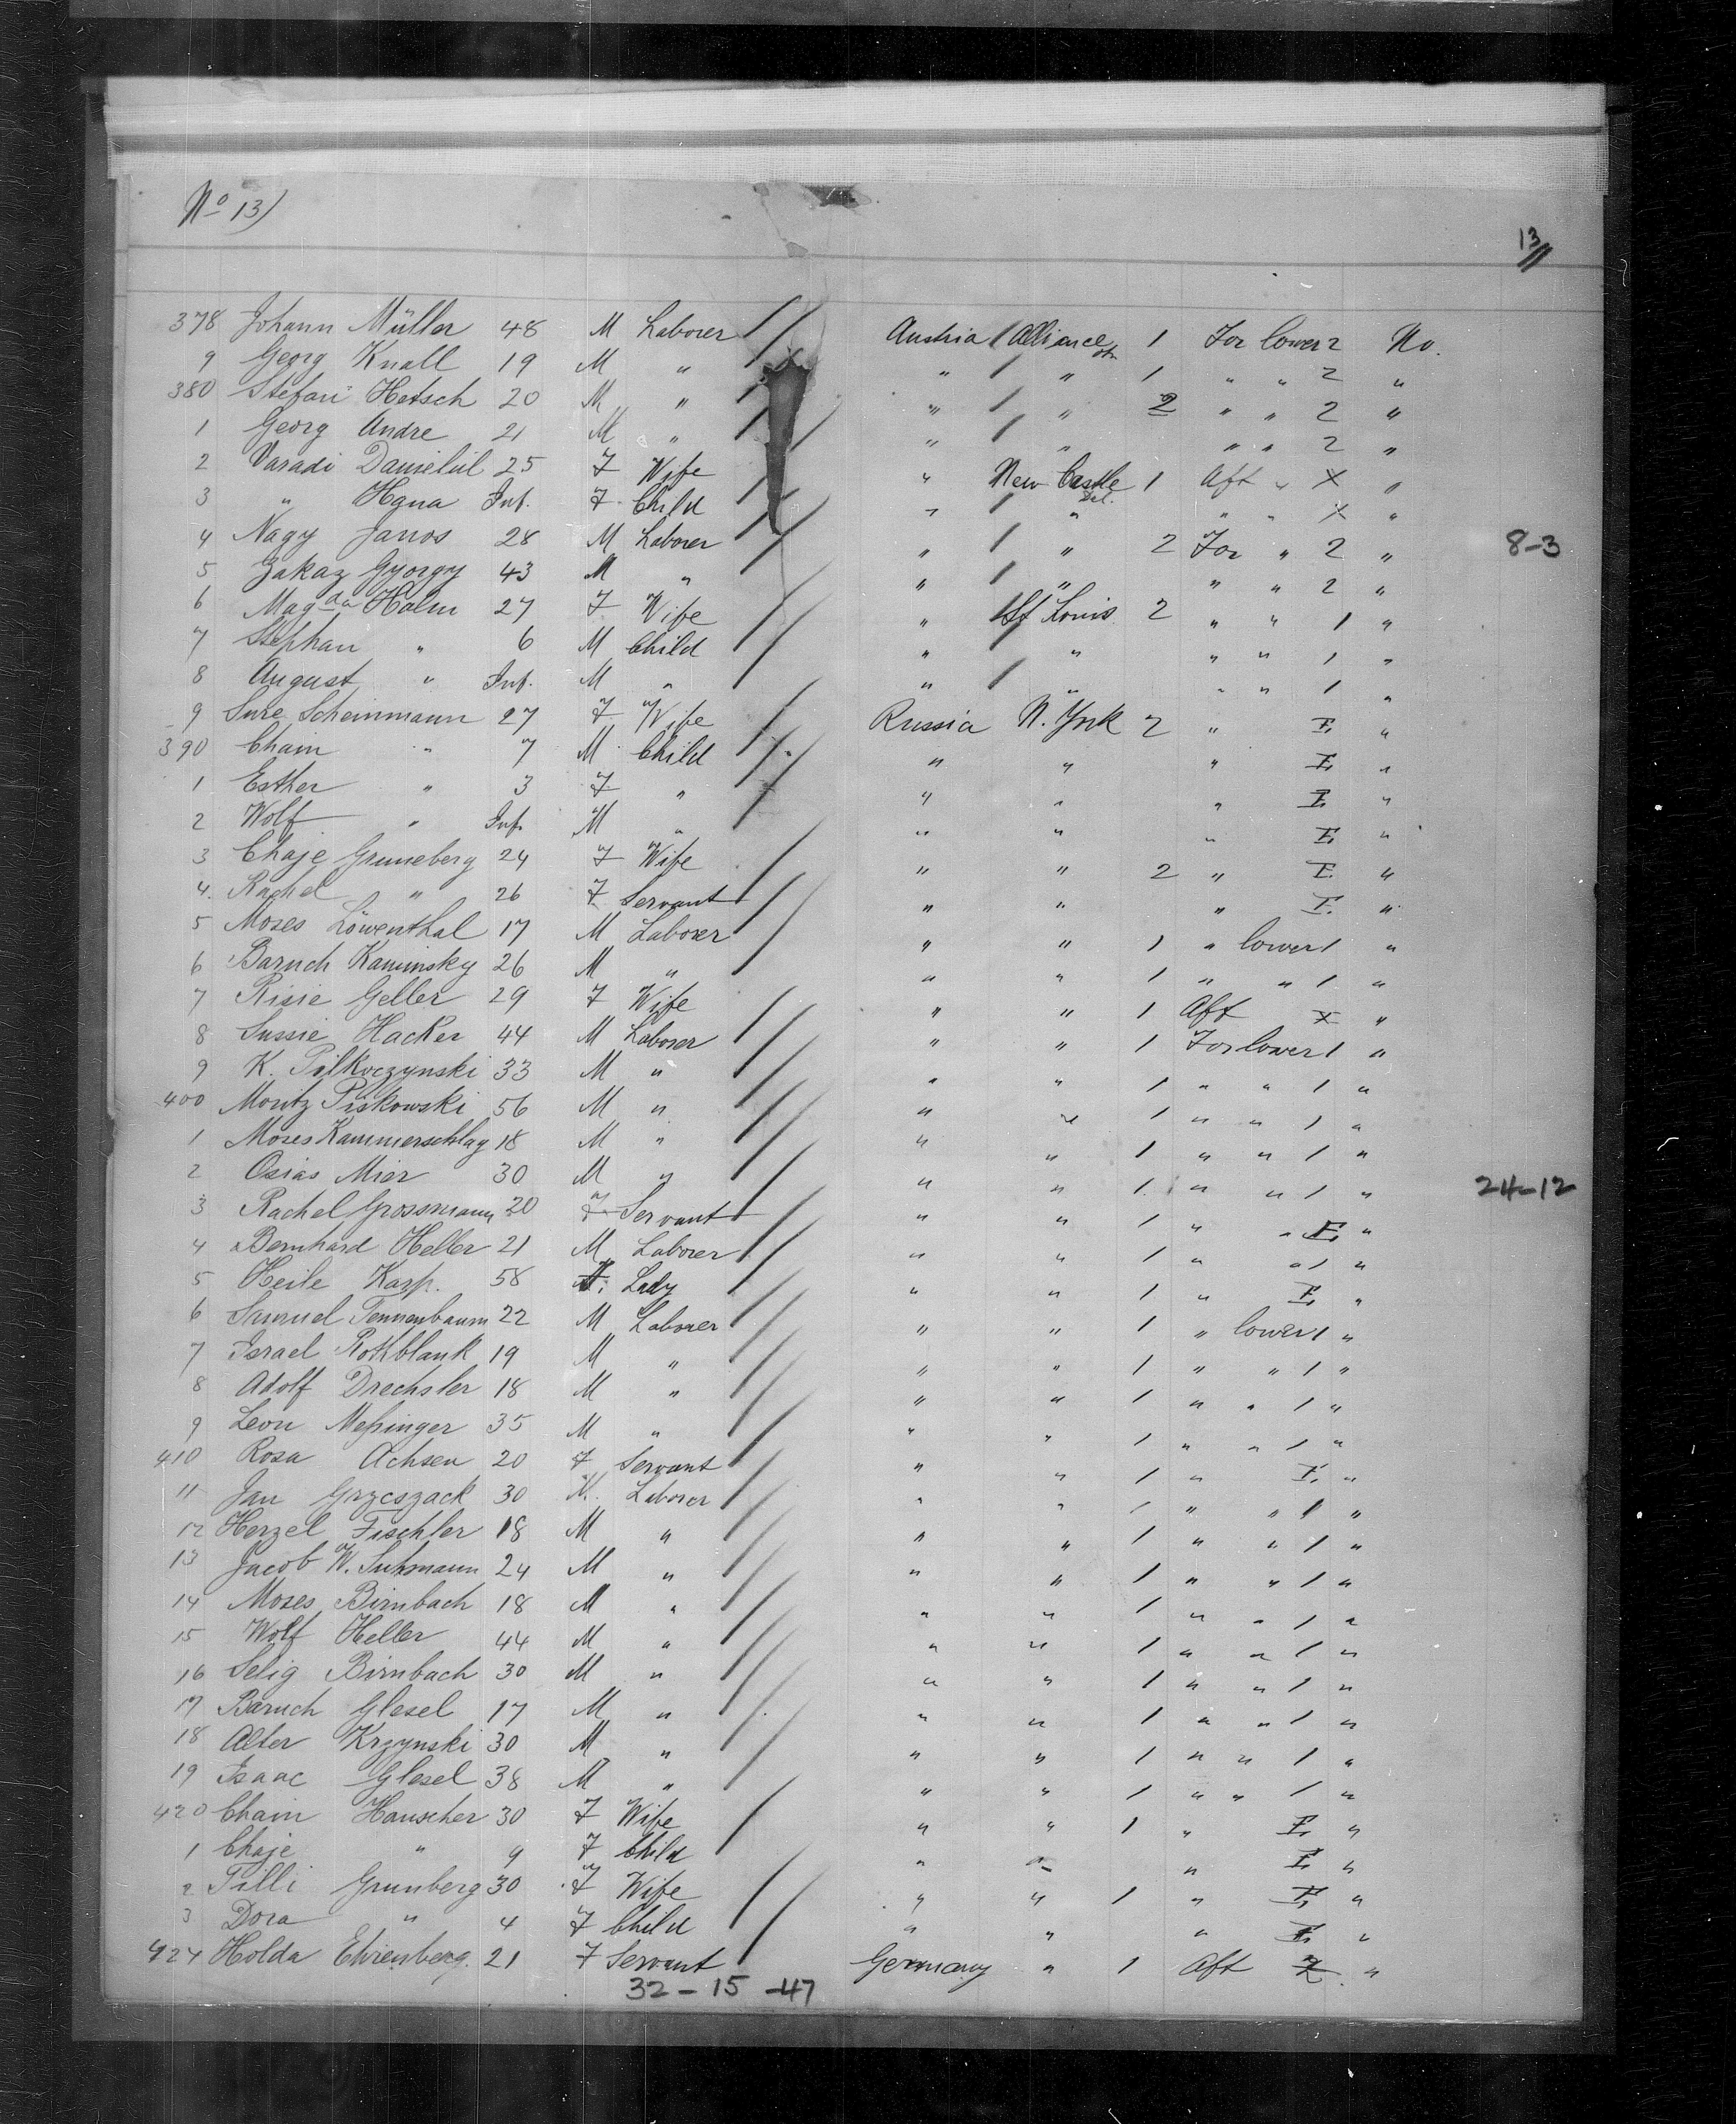 No 13)
13
378 Johann Müller 48 M Laborer Austria Alliance 1 For lower 2 No.
9 Georg Knall 19 M " " " 1 " " 2 "
380 Stefan Hetsch 20 M " " " 2 " " 2 "
1 Georg Andre 21 M " " " " " 2 "
2 Varadi 25 F Wife " New Castle Del. 1 Aft " X "
3 " Hana Inf. F Child " " " " X "
4 Nagy Janos 28 M Laborer " " 2 For " 2 " 8-3
5 Zakaz Gyorgy 43 M " " " " " 2 "
6 Magda Halm 27 F Wife " St Louis 2 " " 1 "
7 Stephan " 6 M Child " " " " 1 "
8 August " Inf. M " " " " " 1 "
9 Sure Scheinmann 27 F Wife Russia N. York 2 " E. "
390 Chain " 7 M Child " " " E. "
1 Esther " 3 F " " " " E. "
2 Wolf " Inf. M " " " " E. "
3 Chaje Gruneberg 24 F Wife " " 2 " E. "
4. Rachel " 26 F Servant " " " E. "
5 Moses Löwenthal 17 M Laborer " " 1 " lower 1 "
6 Baruch Kaminsky 26 M " " " 1 " " 1 "
7 Risie Geller 29 F Wife " " 1 Aft X "
8 Sussie Hacker 44 M Laborer " " 1 For lower 1 "
9 K. Pilkoczynski 33 M " " " 1 " " 1 "
400 Moritz Piskowski 56 M " " " 1 " " 1 "
1 Moses Kammerschlag 18 M " " " 1 " " 1 "
2 Osias Mier 30 M " " " 1 " " 1 " 24-12
3 Rachel Grossmann 20 F Servant " " 1 " " E. "
4 Bernhard Heller 21 M Laborer " " 1 " " 1 "
5 Heile Karp. 58 F. Lady " " 1 " E. "
6 Samuel Tennenbaum 22 M Laborer " " 1 " lower 1 "
7 Israel Rothblank 19 M " " " 1 " " 1 "
8 Adolf Drechsler 18 M " " " 1 " " 1 "
9 Leon Meßinger 35 M " " " 1 " " 1 "
410 Rosa Achsen 20 F Servant " " 1 " E. "
11 Jan Grzcszack 30 M. Laborer " " 1 " " 1 "
12 Herzel Fischler 18 M " " " 1 " " 1 "
13 Jacob W. 24 M " " " 1 " " 1 "
14 Moses Birnbach 18 M " " " 1 " " 1 "
15 Wolf Heller 44 M " " " 1 " " 1 "
16 Selig Birnbach 30 M " " " 1 " " 1 "
17 Baruch Glesel 17 M " " " 1 " " 1 "
18 Alter Krzynski 30 M " " " 1 " " 1 "
19 Isaac Glesel 38 M " " " 1 " " 1 "
420 Chain Hauscher 30 F Wife " " 1 " E. "
1 Chaje " 9 F Child " " " E. "
2 Tilli Grunberg 30 F Wife " " 1 " E. "
3 Dora " 4 F Child " " " E. "
424 Holda Ehrenberg. 21 F Servant Germany " 1 Aft "
32 - 15 - 47